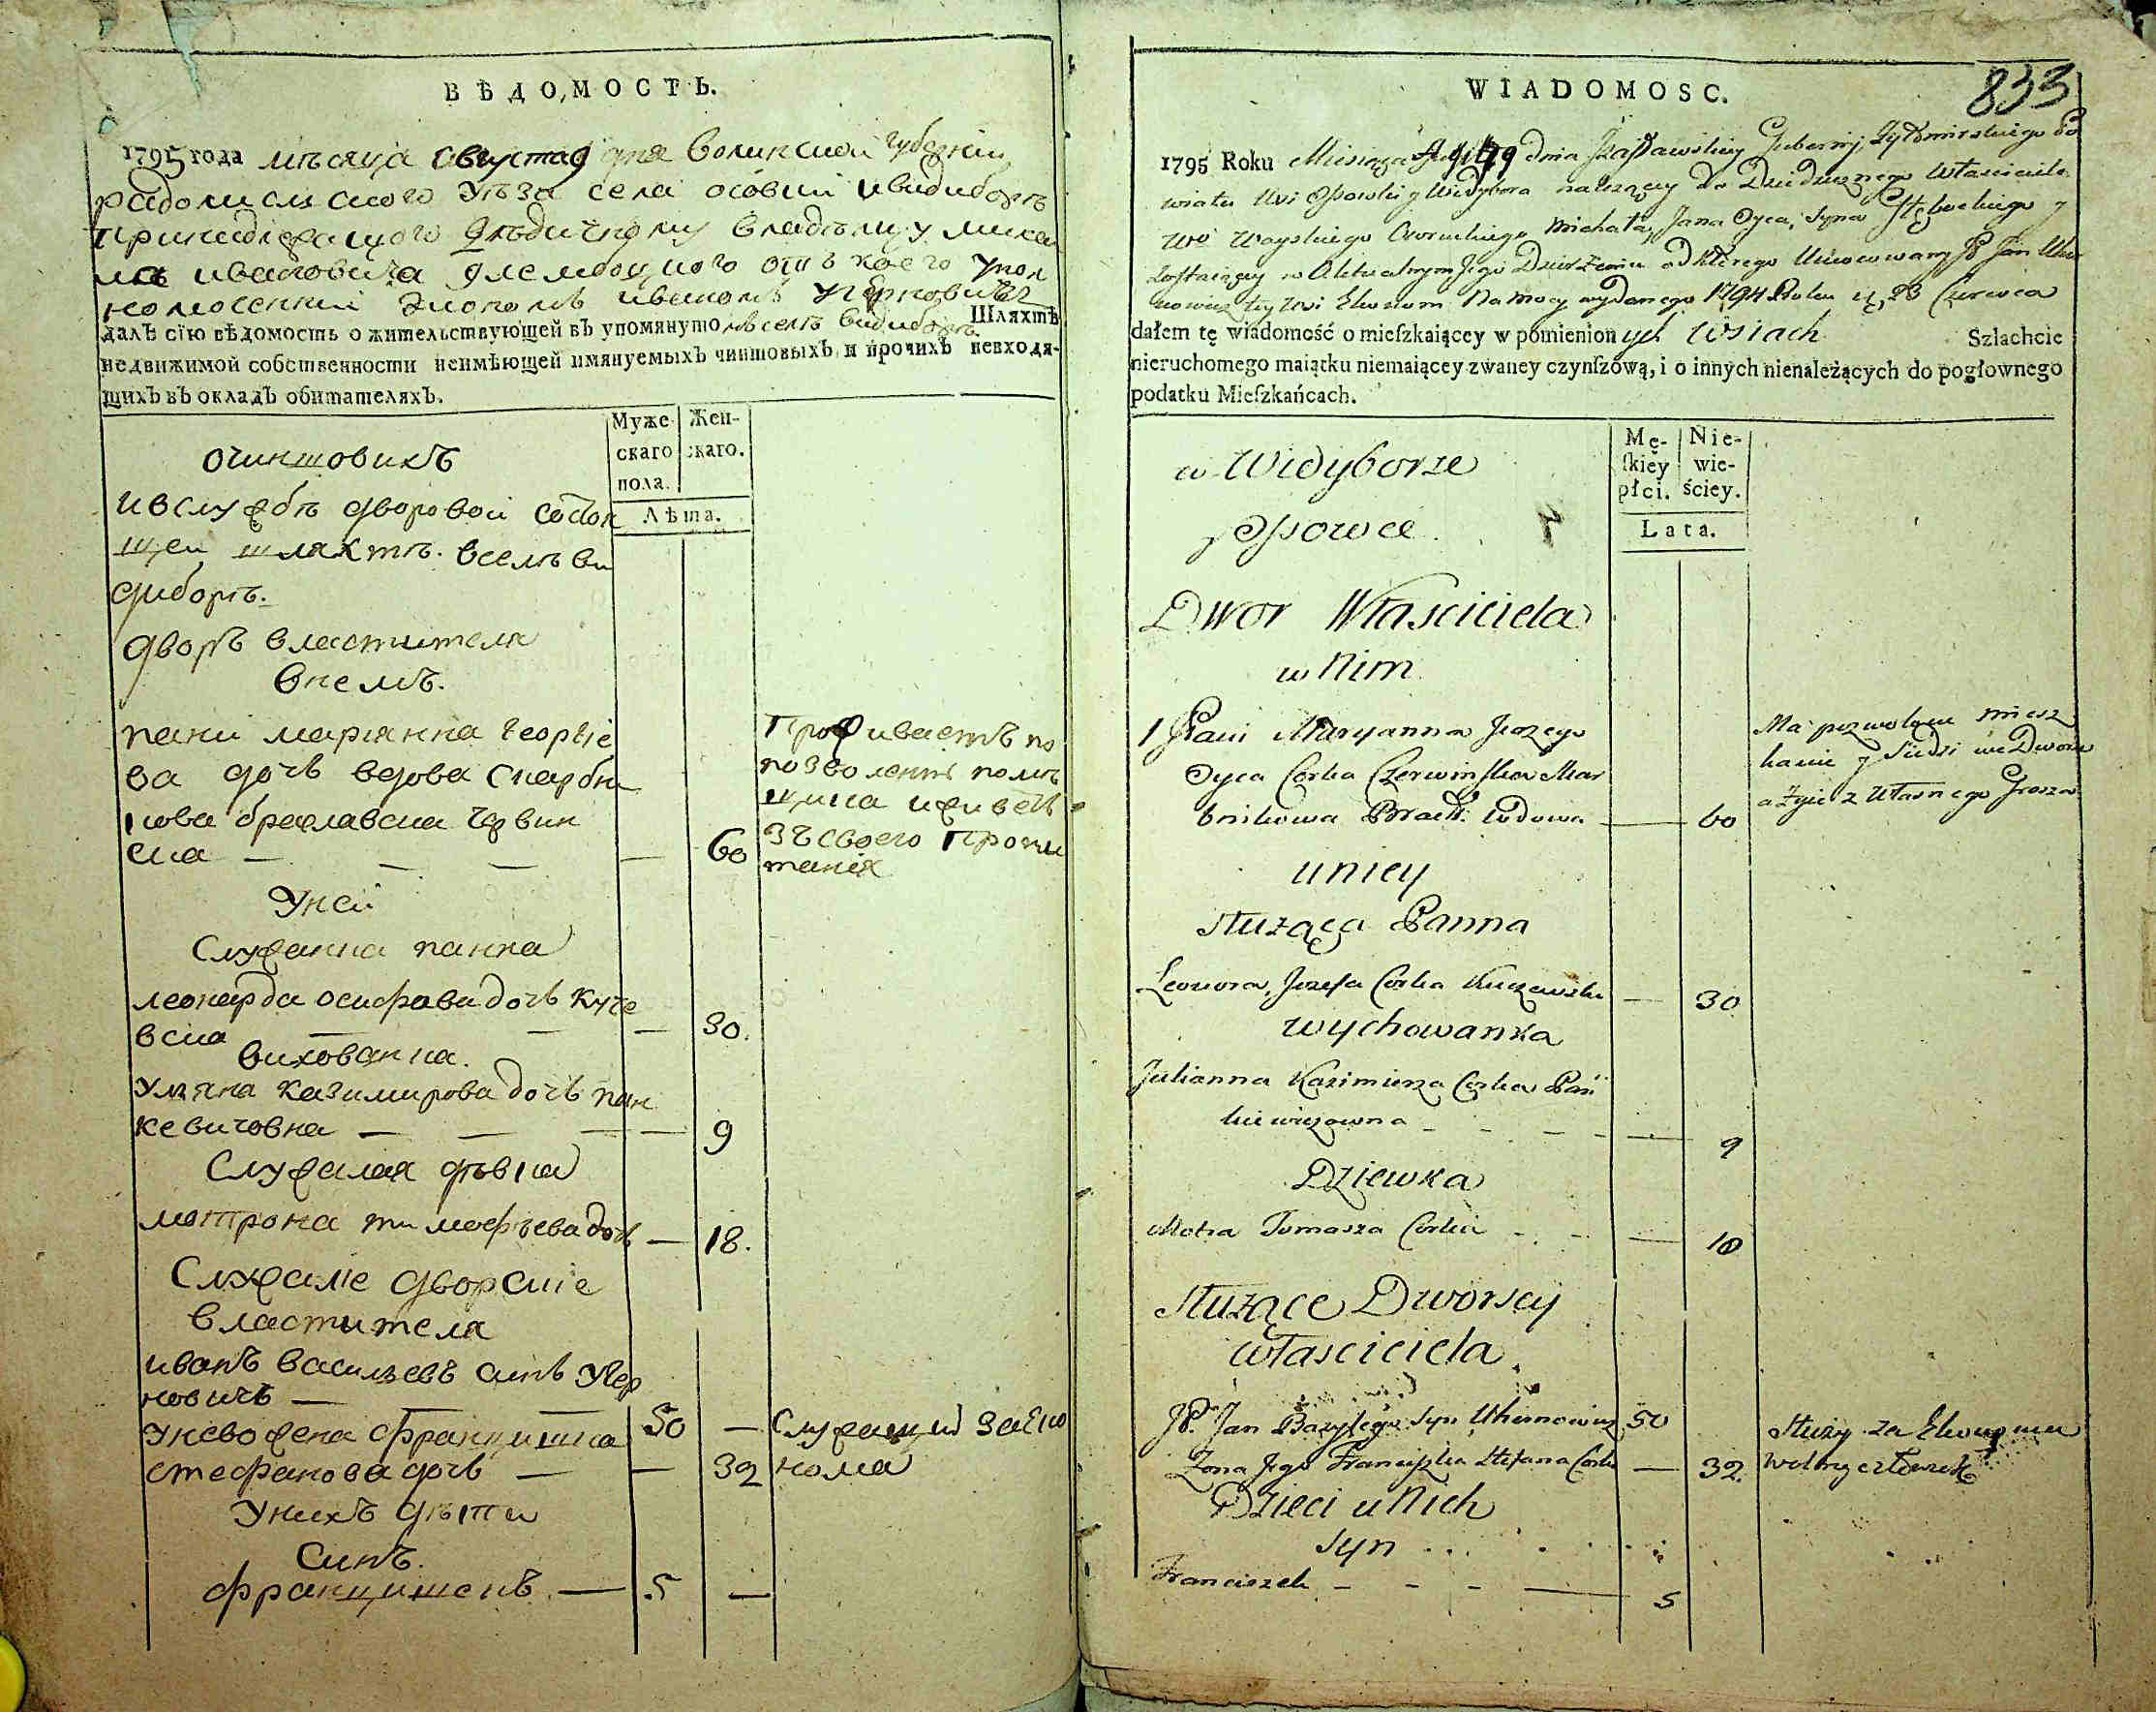 ВѢДОМОСТЬ.
1795 года мѣсяца августа 9 дня волинской губернїи
радомислского уѣзда села осовки ивидиборъ
принадлежащого дѣдичному владѣлцу миха
ивановича от коего упол
номоченний экономъ иваномъ
далъ сїю вѣдомость о жительствующей въ упомянуто мъ селѣ видиборѣ Шляхтѣ
недвижимой собственности неимѣющей имянуемыхъ чиншовыхъ и прочихъ невходя-
щихъ въ окладъ обитателяхъ.
Муже-
скаго
пола.
Жен-
скаго.
Лѣта.
очиншовихъ
ивслужбѣ дворовой состоя
щей шляхтѣ. вселѣ ви
диборѣ.
дворъ властителя
внемъ.
пани марианна георгїе
ва дочь вдова скарбни
кова браславска червин
ска — — — — 60
Проживаетъ по
позволенїю помѣ
щика иживетъ
зъ своего пропи
танїя
Уней
Служанка панна
леонарда осифова дочь куче
вска — — — 30.
вихованка.
Уляна казимирова дочь пан
кевичовна — — — — 9
Служалая дѣвка
мотрона тимофѣева дочь — 18.
Служалїе дворскїе
властителя
иванъ васильевъ синъ Ухер
новичъ — — 50 —
Служащий заеко
нома
Унево жена францишка
стефанова дочь — — 32
Унихъ дѣти
Синъ.
францишекъ — 5 —
WIADOMOSC.
833
1795 Roku Miesiąca 9 dnia Izasławskiey Gubernij Żytomirskiego Po
wiatu Wsi Ossowki y Widybora należący do Dziedzicznego Własciciela
Woyskiego Owruckiego Michała, Jana Oyca, Syna y
zostaiący w Aktualnym Jego Dzierżeniu od którego Umocowany JP Jan
teyże wsi Ekonom Na mocy wydanego 1794 Roku 23 Czerwca
dałem tę wiadomość o mieſzkaiącey w pomienion ych Wsiach Szlachcie
nieruchomego maiątku niemaiącey zwaney czynſzową, i o innych nienależących do pogłownego
podatku Mieſzkańcach.
Mę-
ſkiey
płci.
Nie-
wie-
ściey.
Lata.
w Widyborze
y Ossowce
Dwor Własciciela
w Nim
1 JPani Maryanna Jerzego
Oyca Corka Czerwinska Skar
bnikowa Bracł: Wdowa — 60
Ma pozwolone miesz
kanie y Siedzi we Dworze
a żyie z Własnego Grosza
u niey
służąca Panna
Leonora, Jozefa Corka Kuczewska — 30
Wychowanka
Julianna Kazimierza Corka Pań
kiewiczowna - - - - — 9
Dziewka
Motra Tomasza Corka - - — 18
Służące Dworscy
własciciela
JP. Jan Bazylego Syn Uhernowicz 50
Służy za Ekonoma
Wolny człowiek
Zona Jego Franciszka Stefana Corka — 32.
Dzieci u Nich
Syn
Franciszek - - - — 5